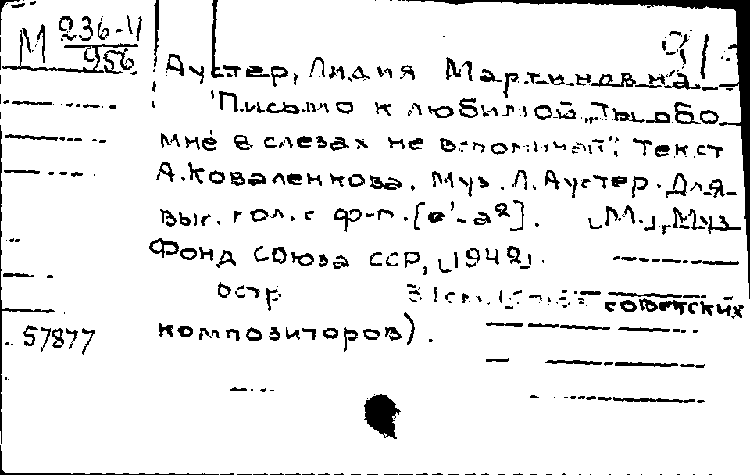 М 236-VI
956
91
Аустер, Лидия Мартиновна
Письмо к любимой „Ты обо
мне в слезах не вспоминай". Текст
А. Коваленкова. Муз. Л. Аустер. Для
выс. гол. с ф-п. [e'-a²]. [М.], Муз
Фонд Союза ССР, [1942].
остр советских
57877 композиторов).